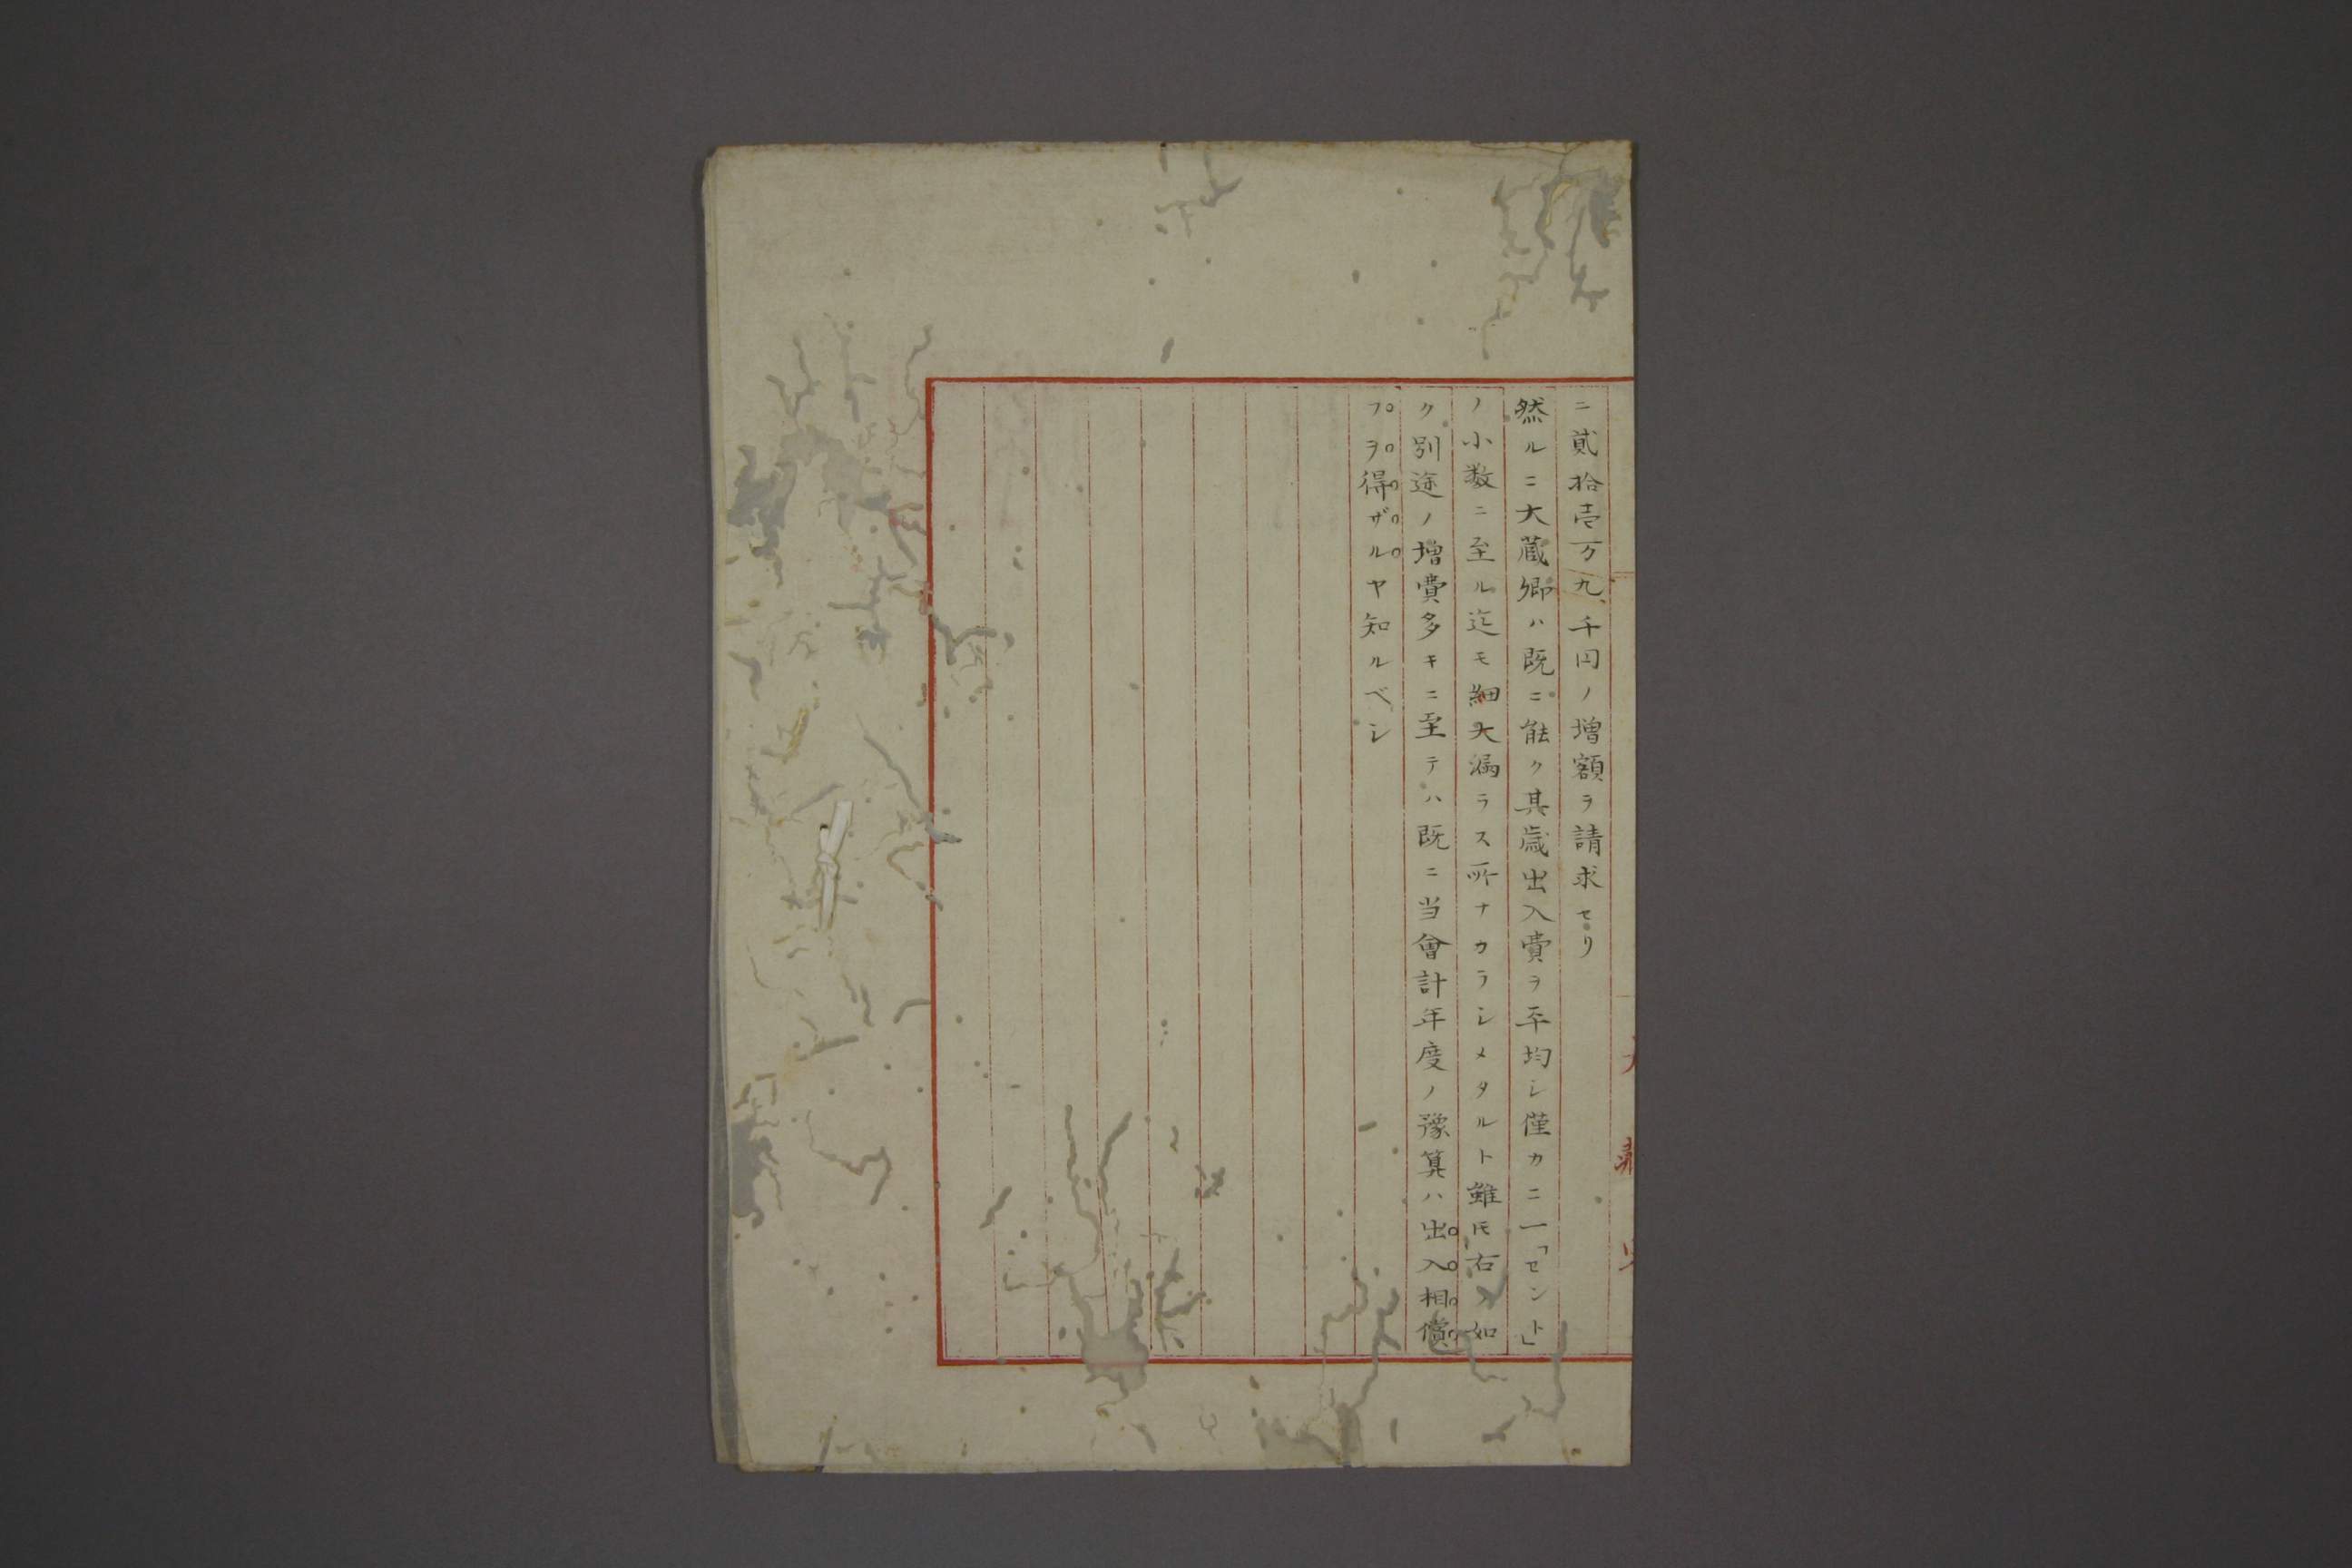 ニ貳拾壱万九千円ノ増額ヲ請求セリ
然ルニ大蔵卿ハ既ニ能ク其歳出入費ヲ平均シ僅カニ一「セント」
ノ小数ニ至ル迄モ細大漏ラス所ナカラシメタルト雖𪜈右ノ如
ク別途ノ増費多キニ至テハ既ニ当會計年度ノ豫算ハ出入相償
フヲ得ザルヤ知ルベシ